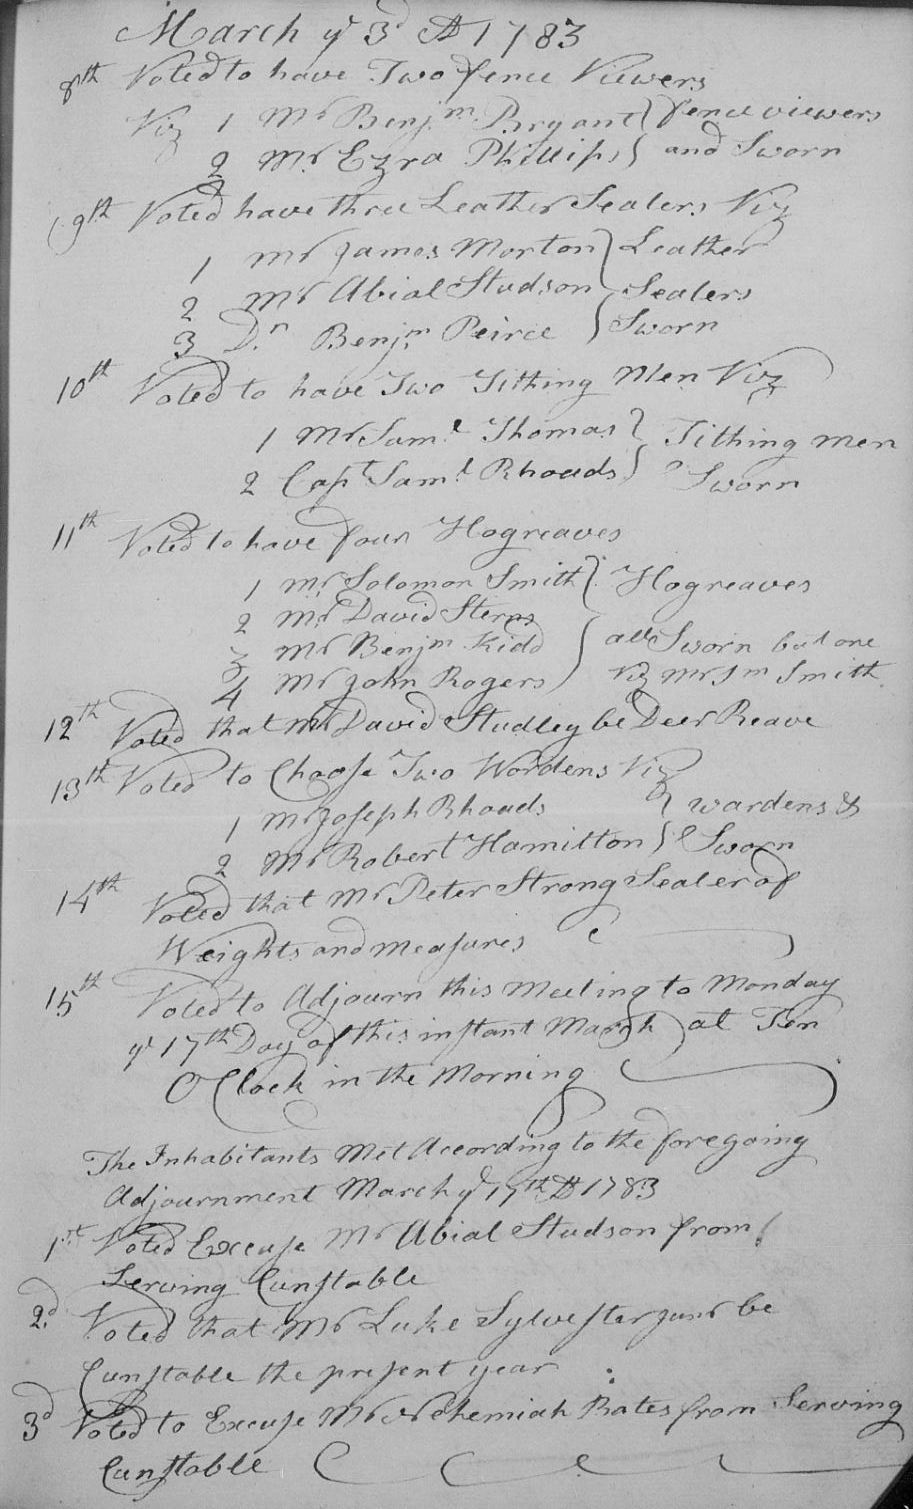 March ye 3d AD 1783
8th Voted to have Two fence Viewers
Viz 1 Mr Benjm Bryant } fence viewers
2 Mr Ezra Phillips } and Sworn
9th Voted have three Leather Sealers Viz
1 Mr James Morton } Leather
2 Mr Abial Studson } Sealers
3 Dn Benjm Peirce } Sworn
10th Voted to have Two Tithing Men Viz
1 Mr Saml Thomas } Tithing men
2 Capt Saml Rhoads } Sworn
11th Voted to have four Hogreaves
1 Mr Solomon Smith } Hogreaves
2 Mr David Sterns
3 Mr Benjm Kidd } all Sworn but one
4 Mr John Rogers } viz Mr Sm Smith
12th Voted that Mr David Studley be Deer Reave
13th Voted to Choose Two Wordens Viz
1 Mr Joseph Rhoads } wardens &
2 Mr Robert Hamilton } Sworn
14th Voted that Mr Peter Strong Sealer of
Weights and measures
15th Voted to Adjourn this Meeting to Monday
ye 17th Day of this instant March at Ten
O Clock in the Morning
The Inhabitants Met According to the foregoing
Adjournment March ye 17th AD 1783
1st Voted Excuse Mr Abial Studson from
Serving Cunstable
2d Voted that Mr Luke Sylvester junr be
Cunstable the present year
3d Voted to Excuse Mr Nehemiah Bates from Serving
Cunstable